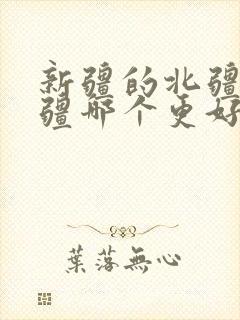 新疆的北疆
疆那个更好
葉落無心